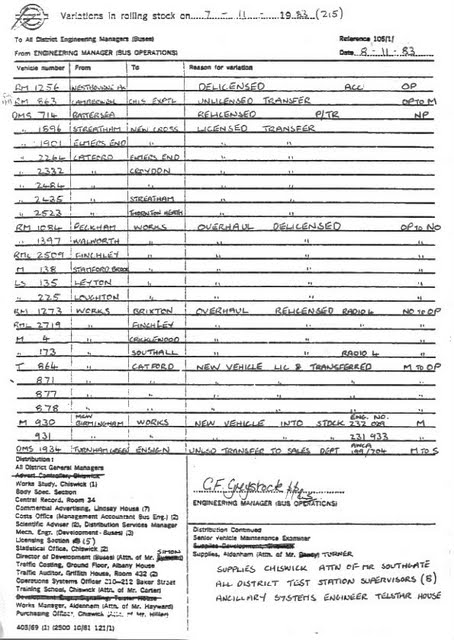 Variations in rolling stock on 7 - 11 - 19 83 (215)
To All District Engineering Managers (Buses) Reference 105/1/
From ENGINEERING MANAGER (BUS OPERATIONS) Date 8 - 11 - 83
Vehicle number From To Reason for variation
RM 1256 DELICENSED ACC OP
RM 863 CHIS EXPTL UNLICENSED TRANSFER OP TO M
DMS 714 BATTERSEA RELICENSED P/TR NP
" 1896 STREATHAM NEW CROSS LICENSED TRANSFER
" 1901 ELMERS END "
" 2244 CATFORD ELMERS END
" 2332 " CROYDON
" 2484 " "
" 2435 " STREATHAM
" 2523 " THORNTON HEATH
RM 1084 PECKHAM WORKS OVERHAUL DELICENSED OP TO NO
" 1397 WALWORTH " " "
RML 2509 FINCHLEY " " "
M 138 STAMFORD BROOK " " "
LS 135 LEYTON " " "
" 225 LOUGHTON " " "
RM 1273 WORKS BRIXTON OVERHAUL RELICENSED RADIO 4 NO TO OP
RML 2719 " FINCHLEY " " "
M 4 " CRICKLEWOOD " " "
" 173 " SOUTHALL " " RADIO 4 "
T 864 " CATFORD NEW VEHICLE LIC & TRANSFERRED M TO OP
871 " " " "
877 " " " "
878 " " " "
M 930 MCW BIRMINGHAM WORKS NEW VEHICLE INTO STOCK ENG. NO. 232 029 M
931 " " " 231 933 "
DMS 1934 TURNHAM GREEN ENSIGN UNLSD TRANSFER TO SALES DEPT 199/704 M TO S
Distribution:
All District General Managers
Advert Controller, Chiswick
Works Study, Chiswick (1)
Body Spec. Section
Central Record, Room 34
Commercial Advertising, Lindsey House (7)
Costs Office (Management Accountant Bus Eng.) (2)
Scientific Adviser (2), Distribution Services Manager
Mech. Engr. (Development - Buses) (3)
Licensing Section (15)
Statistical Office, Chiswick (2)
Director of Development (Buses) (Attn. of Mr. SIMON)
Traffic Costing, Ground Floor, Albany House
Traffic Auditor, Griffith House, Room 432 (2)
Operations Systems Officer 210-212 Baker Street
Training School, Chiswick (Attn. of Mr. Carter)
Works Manager, Aldenham (Attn. of Mr. Hayward)
Purchasing Officer, Chiswick (Attn. of Mr. Hillier)
403/69 (1) (2500 10/81 121/1)
ENGINEERING MANAGER (BUS OPERATIONS)
Distribution Continued
Senior Vehicle Maintenance Examiner
Supplies Development, Chiswick
Supplies, Aldenham (Attn. of Mr. TURNER
SUPPLIES CHISWICK ATTN OF MR SOUTHGATE
ALL DISTRICT TEST STATION SUPERVISORS (8)
ANCILLARY SYSTEMS ENGINEER TELSTAR HOUSE